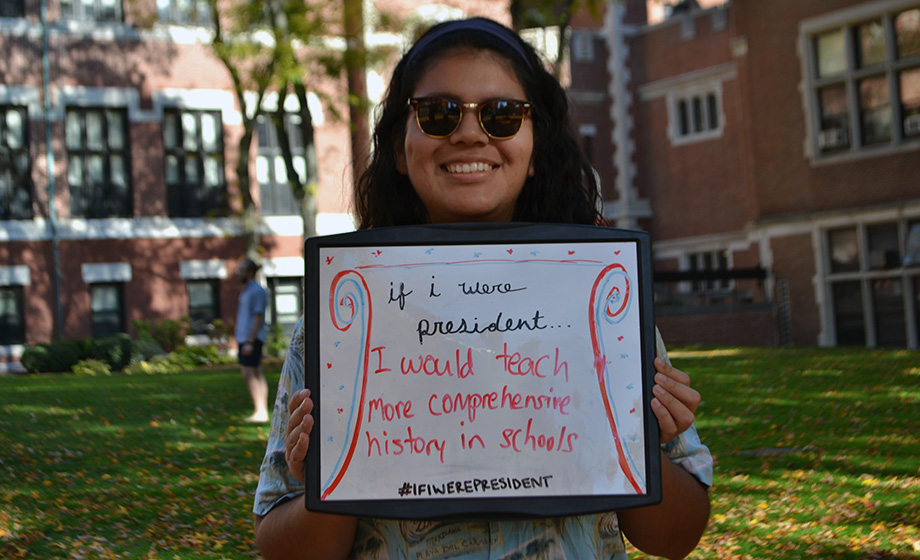 if i were
president...
I would teach
more comprehensive
history in schools
#IFIWEREPRESIDENT
PLAYA DEL CARMEN